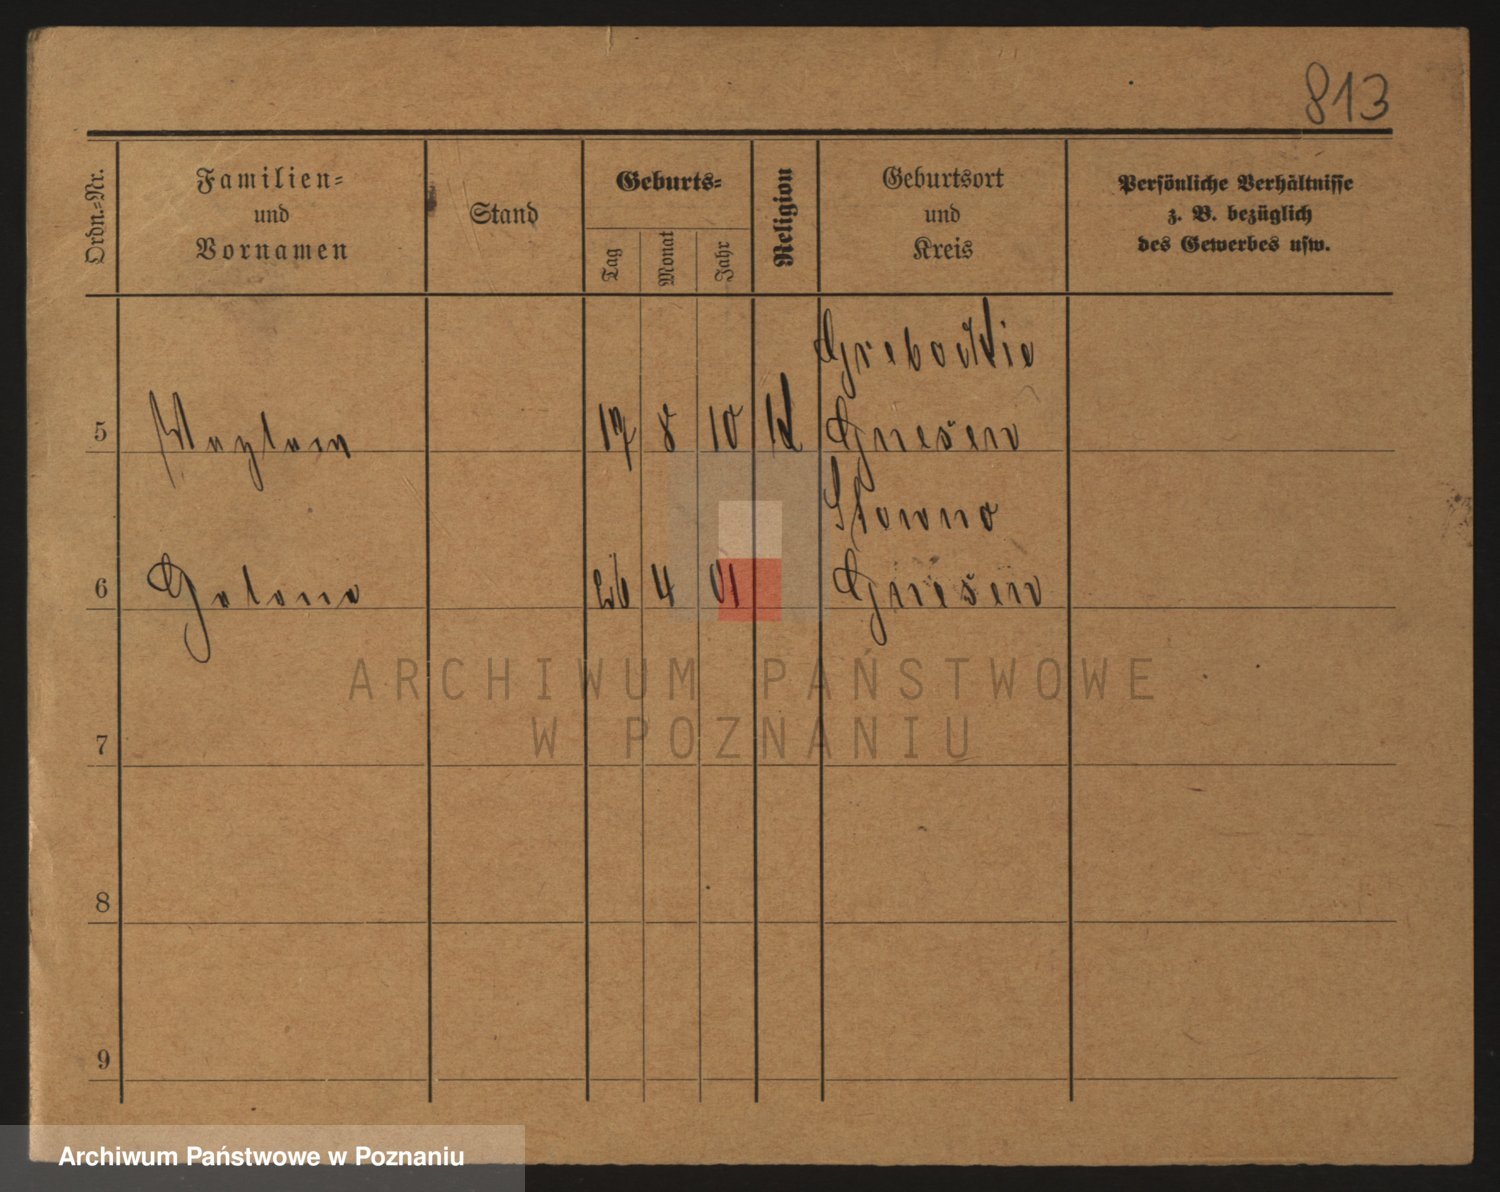 813
Ordn.-Nr.
Familien-
und
Vornamen
Stand
Geburts-
Tag
Monat
Jahr
Religion
Geburtsort
und
Kreis
Persönliche Verhältnisse
z. B. bezüglich
des Gewerbes usw.
5
17 8 10 k
Gnesen
6
26 4 01
Gnesen
ARCHIWUM PAŃSTWOWE
W POZNANIU
7
8
9
Archiwum Państwowe w Poznaniu